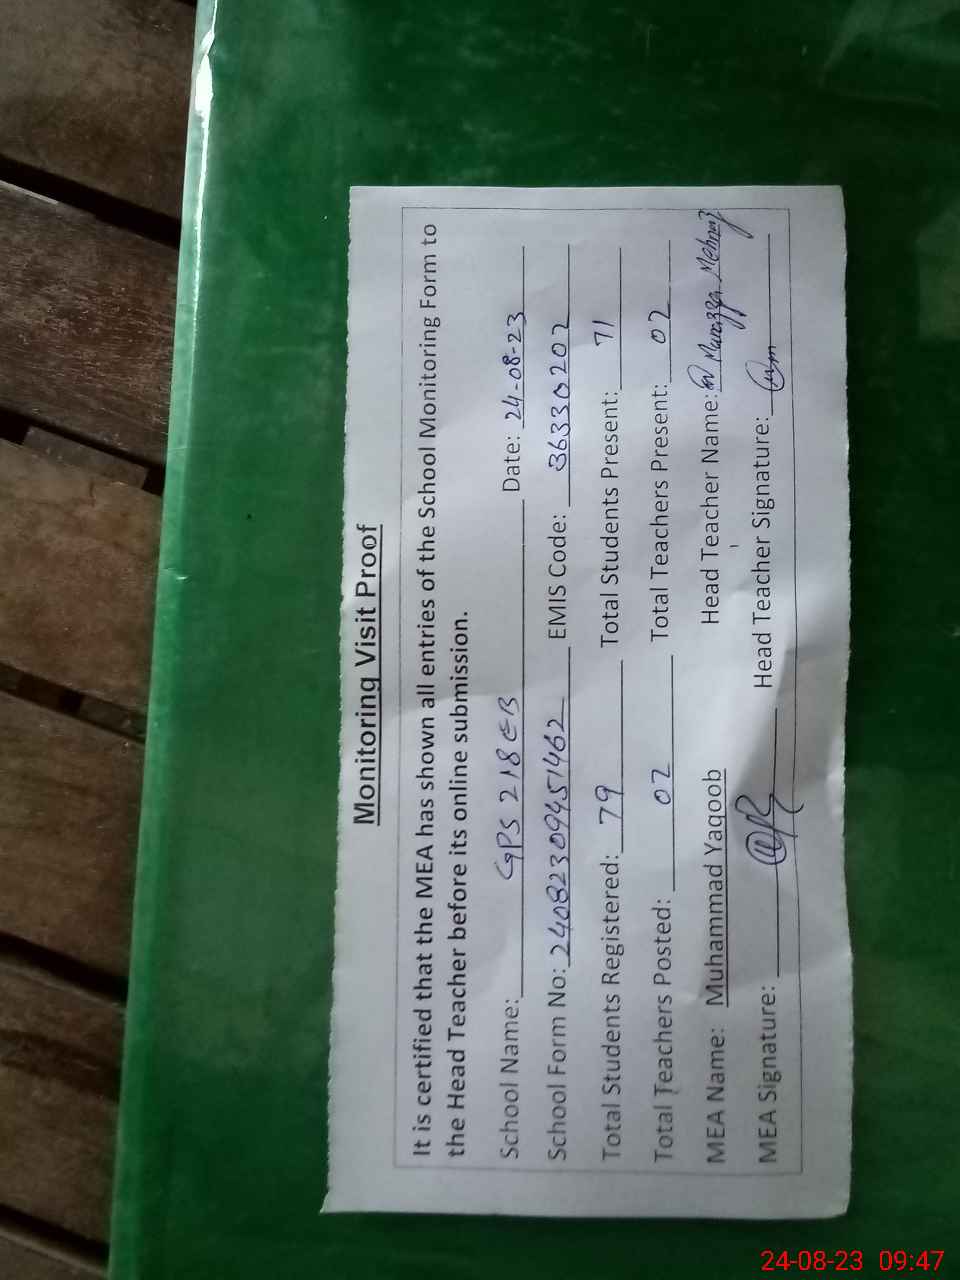 Monitoring Visit Proof
It is certified that the MEA has shown all entries of the School Monitoring Form to
the Head Teacher before its online submission.
School Name: GPS 218 EB Date: 24-08-23
School Form No: 24082309451462 EMIS Code: 36330202
Total Students Registered: 79 Total Students Present: 71
Total Teachers Posted: 02 Total Teachers Present: 02
MEA Name: Muhammad Yaqoob Head Teacher Name: Mehnaz
MEA Signature: Head Teacher Signature:
24-08-23 09:47